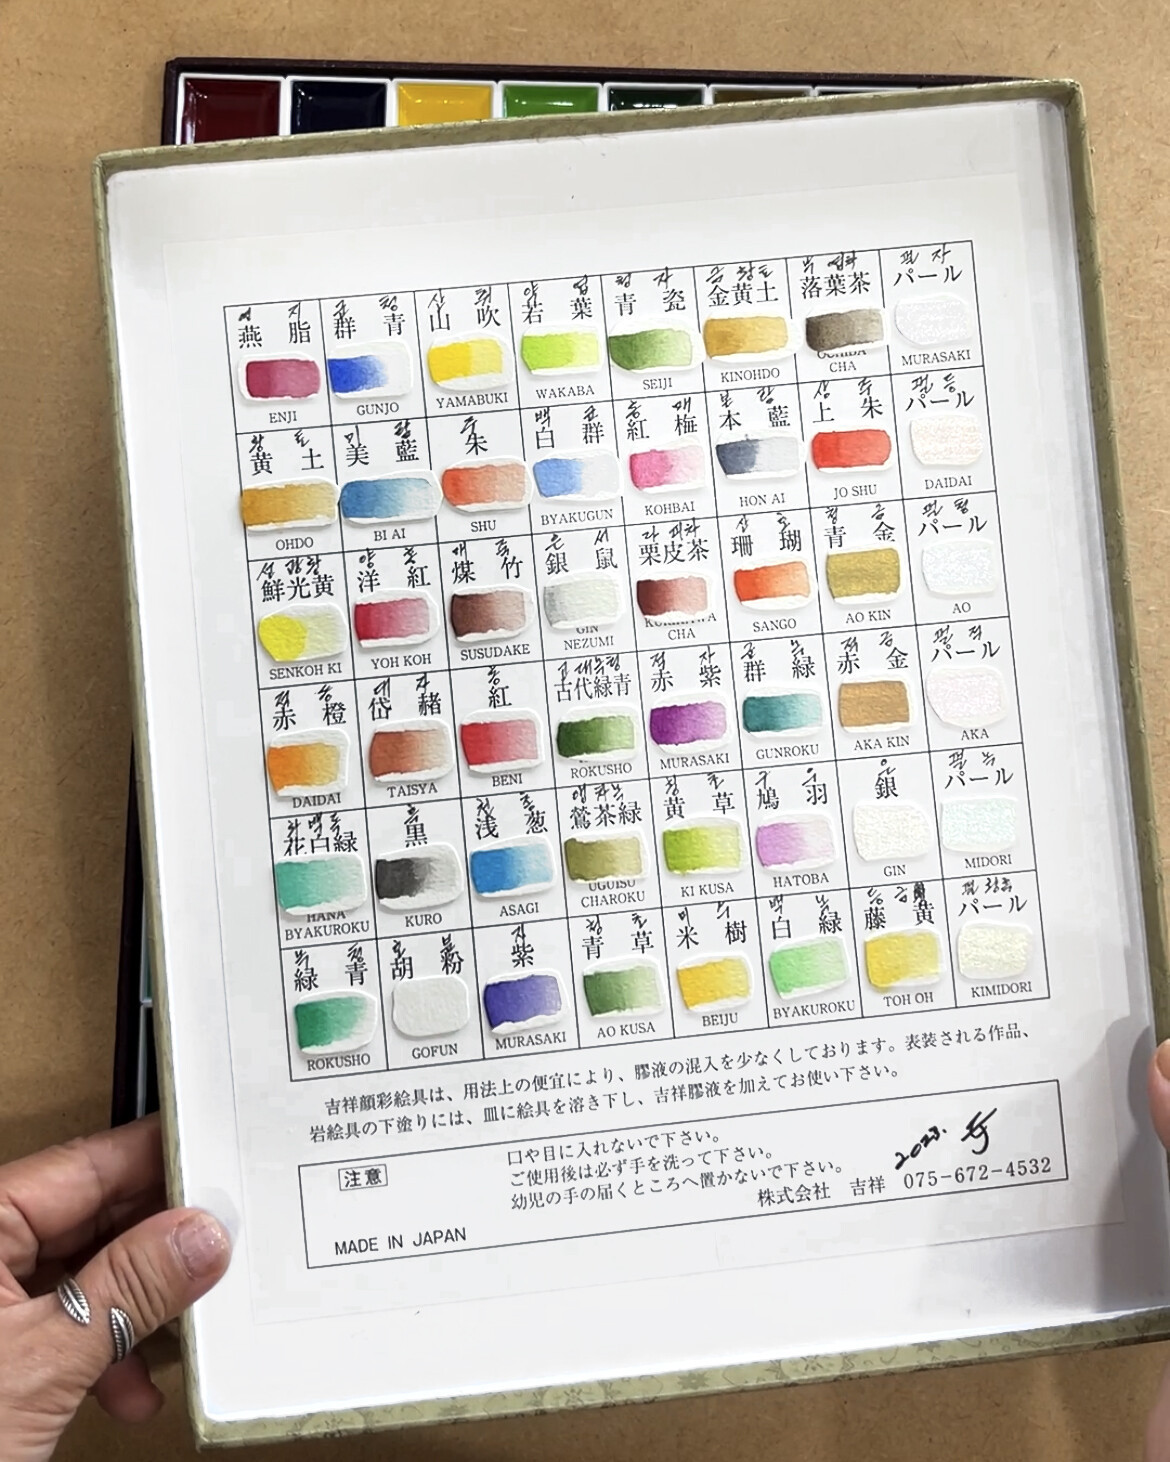 연 지 군 청 산 취 약 엽 청 자 금 황토 낙엽차 펄 자
燕 脂 群 青 山 吹 若 葉 青 瓷 金黄土 落葉茶 パール
ENJI GUNJO YAMABUKI WAKABA SEIJI KINOHDO CHA MURASAKI
황 토 미 람 주 백 군 홍 매 본 람 상 주 펄 등
黄 土 美 藍 朱 白 群 紅 梅 本 藍 上 朱 パール
OHDO BI AI SHU BYAKUGUN KOHBAI HON AI JO SHU DAIDAI
선광황 양 홍 매 죽 은 서 산 호 청 금 펄 청
鮮光黄 洋 紅 煤 竹 銀 鼠 栗皮茶 珊 瑚 青 金 パール
SENKOH KI YOH KOH SUSUDAKE GIN NEZUMI CHA SANGO AO KIN AO
적 등 대 자 홍 고대녹청 적 자 군 녹 적 금 펄 적
赤 橙 岱 赭 紅 古代緑青 赤 紫 群 緑 赤 金 パール
DAIDAI TAISYA BENI ROKUSHO MURASAKI GUNROKU AKA KIN AKA
화백록 흑 천 총 앵차녹 황 초 구 우 은 펄 녹
花白緑 黒 浅 葱 鶯茶緑 黄 草 鳩 羽 銀 パール
HANA BYAKUROKU KURO ASAGI UGUISU CHAROKU KI KUSA HATOBA GIN MIDORI
녹 청 호 분 자 청 초 미 수 백 녹 등 황 펄 황녹
緑 青 胡 粉 紫 青 草 米 樹 白 緑 藤 黄 パール
ROKUSHO GOFUN MURASAKI AO KUSA BEIJU BYAKUROKU TOH OH KIMIDORI
吉祥顔彩絵具は、用法上の便宜により、膠液の混入を少なくしております。表装される作品、
岩絵具の下塗りには、皿に絵具を溶き下し、吉祥膠液を加えてお使い下さい。
注意
口や目に入れないで下さい。
ご使用後は必ず手を洗って下さい。
幼児の手の届くところへ置かないで下さい。
2023.
株式会社 吉祥 075-672-4532
MADE IN JAPAN